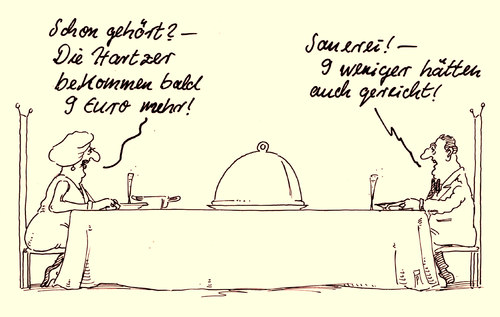 Schon gehört? –
Die Hartzer
bekommen bald
9 Euro mehr!
Sauerei! –
9 weniger hätten
auch gereicht!